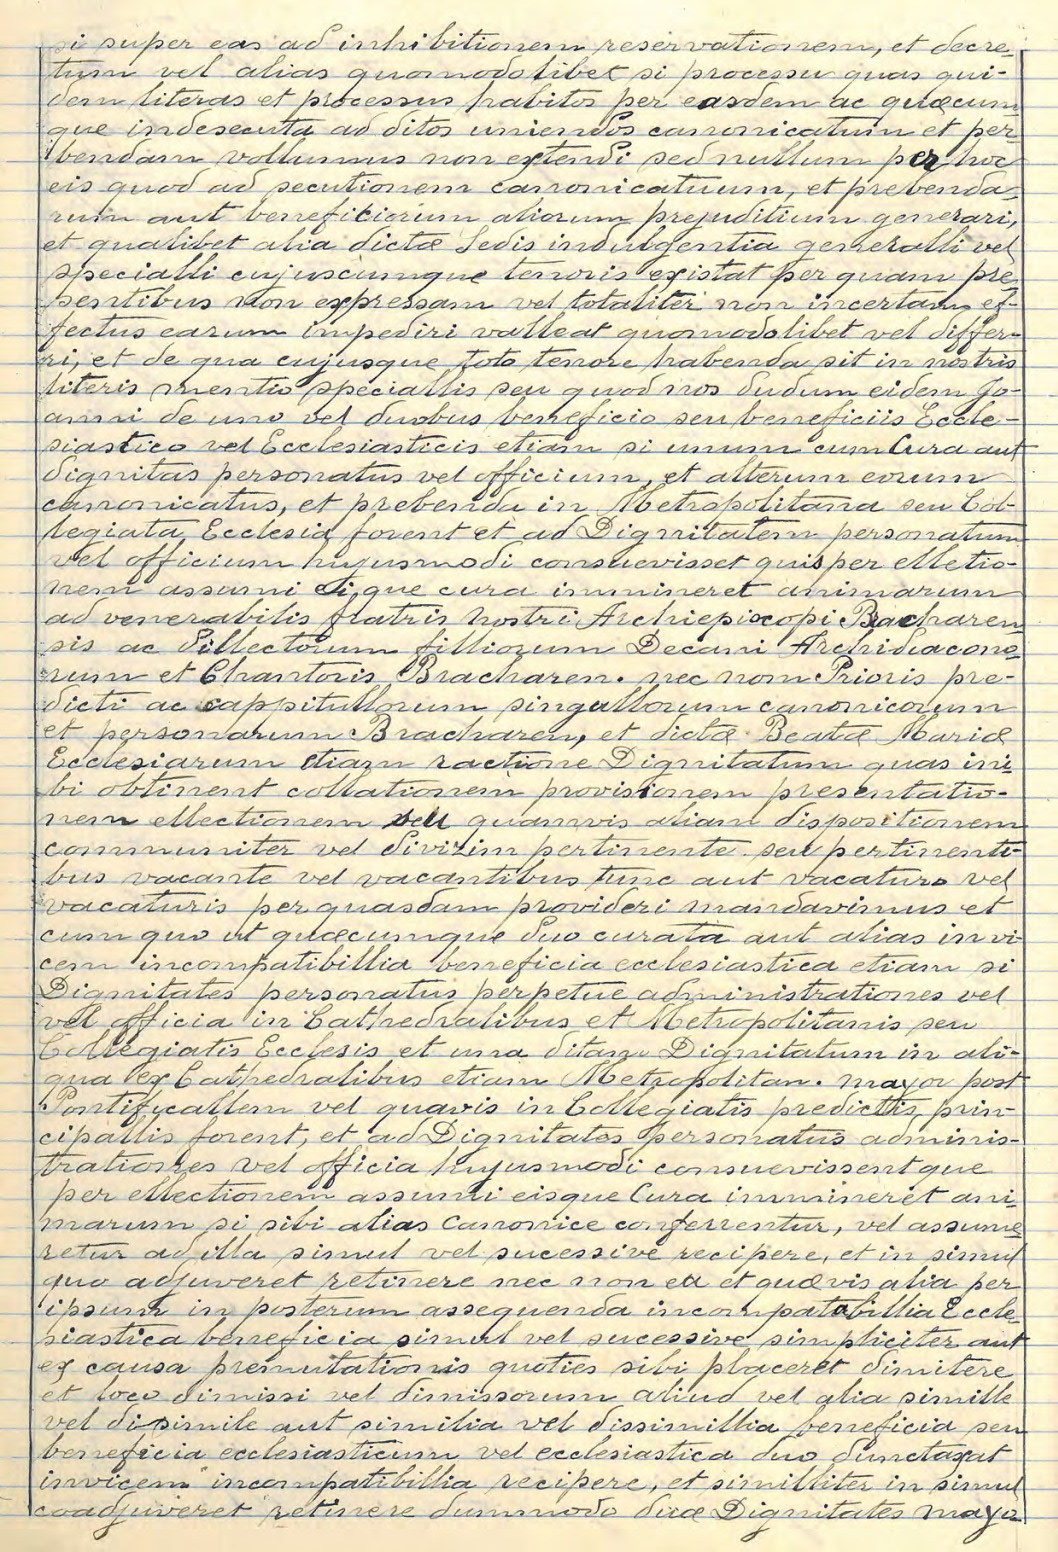 si super eas ad inhibitionem reservationem, et decre-
tum vel alias quomodolibet si processu quas qui-
dem literas et processus habitos per easdem ac quæcum
que indesecuta ad ditos uniendos canonicatum et per-
bendam vollumus non extendi sed nullum per hoc
eis quod ad secutionem canonicatuum, et prebenda-
rum aut beneficiorum aliorum prejuditium generari,
et qualibet alia dictæ Sedis indulgentia generalli vel
specialli cujuscumque tenoris existat per quam pre
sentibus non expressam vel totaliter non incertam ef-
fectus earum impediri valleat quomodolibet vel differ-
ri, et de qua cujusque toto tenore habenda sit in nostris
literis mentio speciallis seu quod nos dudum eidem Jo-
anni de uno vel duobus beneficio seu beneficiis Eccle-
siastico vel Ecclesiasticis etiam si unum cum Cura aut
dignitas personatus vel officium, et alterum eorum
canonicatus, et prebenda in Metropolitana seu Col-
legiata Ecclesia forent et ad Dignitatem personatum
vel officium hujusmodi consuevisset quis per elletio-
nem assumi eique cura immineret animarum
ad venerabilis flatris nostri Archiepiscopi Bracharen
sis ac Dillectorum filliorum Decani Archidiacono-
rum et Chantoris Bracharen. nec non Prioris pre-
dicti ac cappitullorum singullorum canonicorum
et personarum Bracharen, et dictæ Beatæ Mariæ
Ecclesiarum etiam ractione Dignitatum quas ini-
bi obtinent collationem provisionem presentatio-
nem ellectionem seu quamvis aliam dispositionem
communiter vel divizim pertinente seu pertinenti-
bus vacante vel vacantibus tunc aut vacaturo vel
vacaturis per quasdam provideri mandavimus et
cum quo ut quæcumque duo curata aut alias invi-
cem incompatibillia beneficia ecclesiastica etiam si
Dignitates personatus perpetue administrationes vel
vel officia in Cathedralibus et Metropolitanis seu
Collegiatis Ecclesis et una ditam Dignitatum in ali-
qua ex Cathedralibus etiam Metropolitan. mayor post
Pontifycallem vel quavis in Collegiatis predictis prin-
cipallis forent, et ad Dignitates personatus adminis-
trationes vel officia hujusmodi consuevissent que
per ellectionem assumi eisque Cura immineret ani-
marum si sibi alias Canonice conferrentur, vel assume
retur ad illa simul vel sucessive recipere, et in simul
quo adjuveret retinere nec non ea et quævis alia per
ipsum in posterum assequenda incompatabillia Eccle-
siastica beneficia simul vel sucessive simpliciter aut
ex causa premutationis quoties sibi placeret dimitere
et loco dimissi vel dimissorum aliud vel alia simille
vel disimile aut similia vel dissimillia beneficia seu
beneficia ecclesiasticum vel ecclesiastica duo dunctaxat
invicem incompatibillia recipere, et similliter in simul
coadjuveret retinere dummodo duæ Dignitates mayo